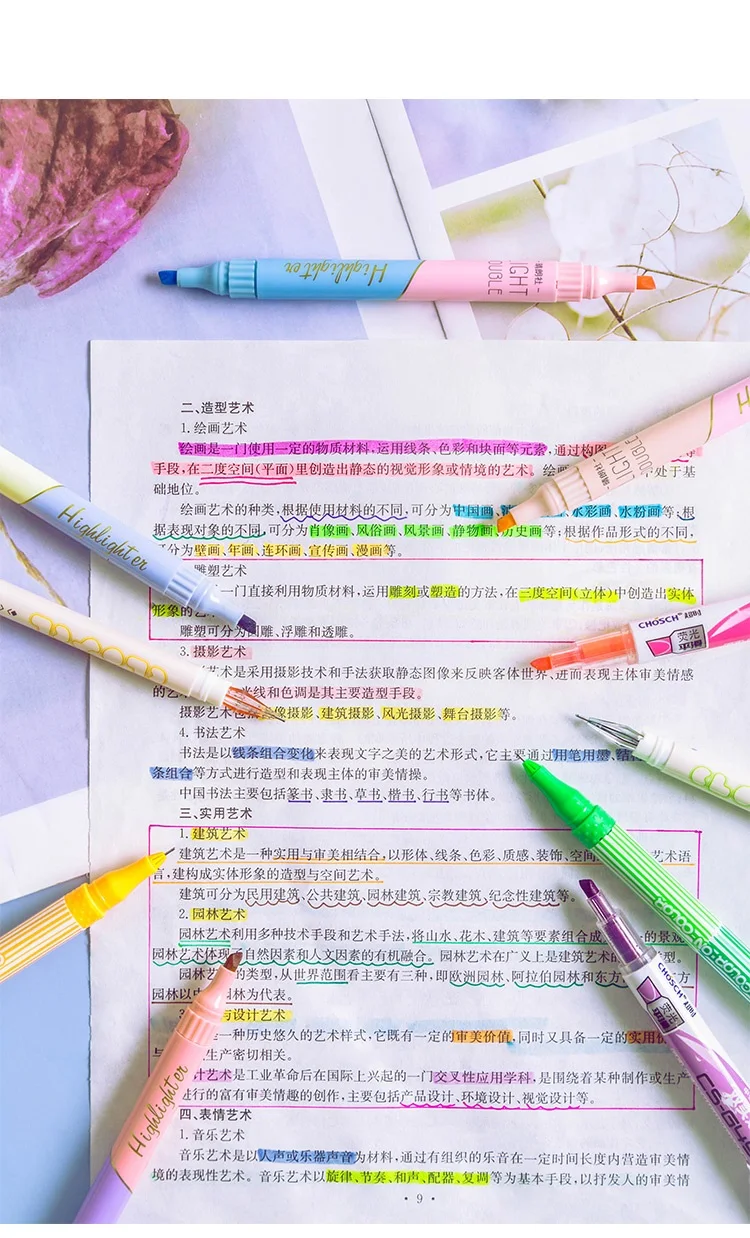 Highlighter
LIGHT
DOUBLE
晨朗社
二、造型艺术
1. 绘画艺术
绘画是一门使用一定的物质材料,运用线条、色彩和块面等元素,通过构图
手段,在二度空间(平面)里创造出静态的视觉形象或情境的艺术。绘画 中处于基
础地位。
绘画艺术的种类,根据使用材料的不同,可分为中国画、 水彩画、水粉画等;根
据表现对象的不同,可分为肖像画、风俗画、风景画、静物画、历史画等;根据作品形式的不同,
可分为壁画、年画、连环画、宣传画、漫画等。
雕塑艺术
一门直接利用物质材料,运用雕刻或塑造的方法,在三度空间(立体)中创造出实体
形象的艺
雕塑可分为圆雕、浮雕和透雕。
3. 摄影艺术
艺术是采用摄影技术和手法获取静态图像来反映客体世界、进而表现主体审美情感
的艺 光线和色调是其主要造型手段。
摄影艺术包括 像摄影、建筑摄影、风光摄影、舞台摄影等。
4. 书法艺术
书法是以线条组合变化来表现文字之美的艺术形式,它主要通过用笔用墨、结
条组合等方式进行造型和表现主体的审美情操。
中国书法主要包括篆书、隶书、草书、楷书、行书等书体。
三、实用艺术
1. 建筑艺术
建筑艺术是一种实用与审美相结合,以形体、线条、色彩、质感、装饰、空间 艺术语
言,建构成实体形象的造型与空间艺术。
建筑可分为民用建筑、公共建筑、园林建筑、宗教建筑、纪念性建筑等。
2. 园林艺术
园林艺术利用多种技术手段和艺术手法,将山水、花木、建筑等要素组合成 的景观
园林艺术体现 自然因素和人文因素的有机融合。园林艺术在广义上是建筑艺术的 类型。
园林艺 的类型,从世界范围看主要有三种,即欧洲园林、阿拉伯园林和东方 方
园林以中 园林为代表。
与设计艺术
是一种历史悠久的艺术样式,它既有一定的审美价值,同时又具备一定的实用价
与 生产密切相关。
计艺术是工业革命后在国际上兴起的一门交叉性应用学科,是围绕着某种制作或生产
进行的富有审美情趣的创作,主要包括产品设计、环境设计、视觉设计等。
四、表情艺术
1. 音乐艺术
音乐艺术是以人声或乐器声音为材料,通过有组织的乐音在一定时间长度内营造审美情
境的表现性艺术。音乐艺术以旋律、节奏、和声、配器、复调等为基本手段,以抒发人的审美情
• 9 •
Highlighter
Highlighter
LIGHT
DOUBLE
CHOSCH
荧光
CHOSCH
荧光